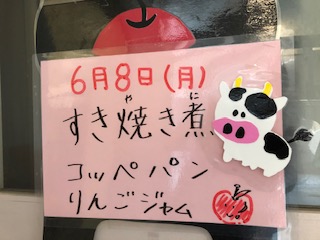 6月8日(月)
すき焼き煮
コッペパン
りんごジャム